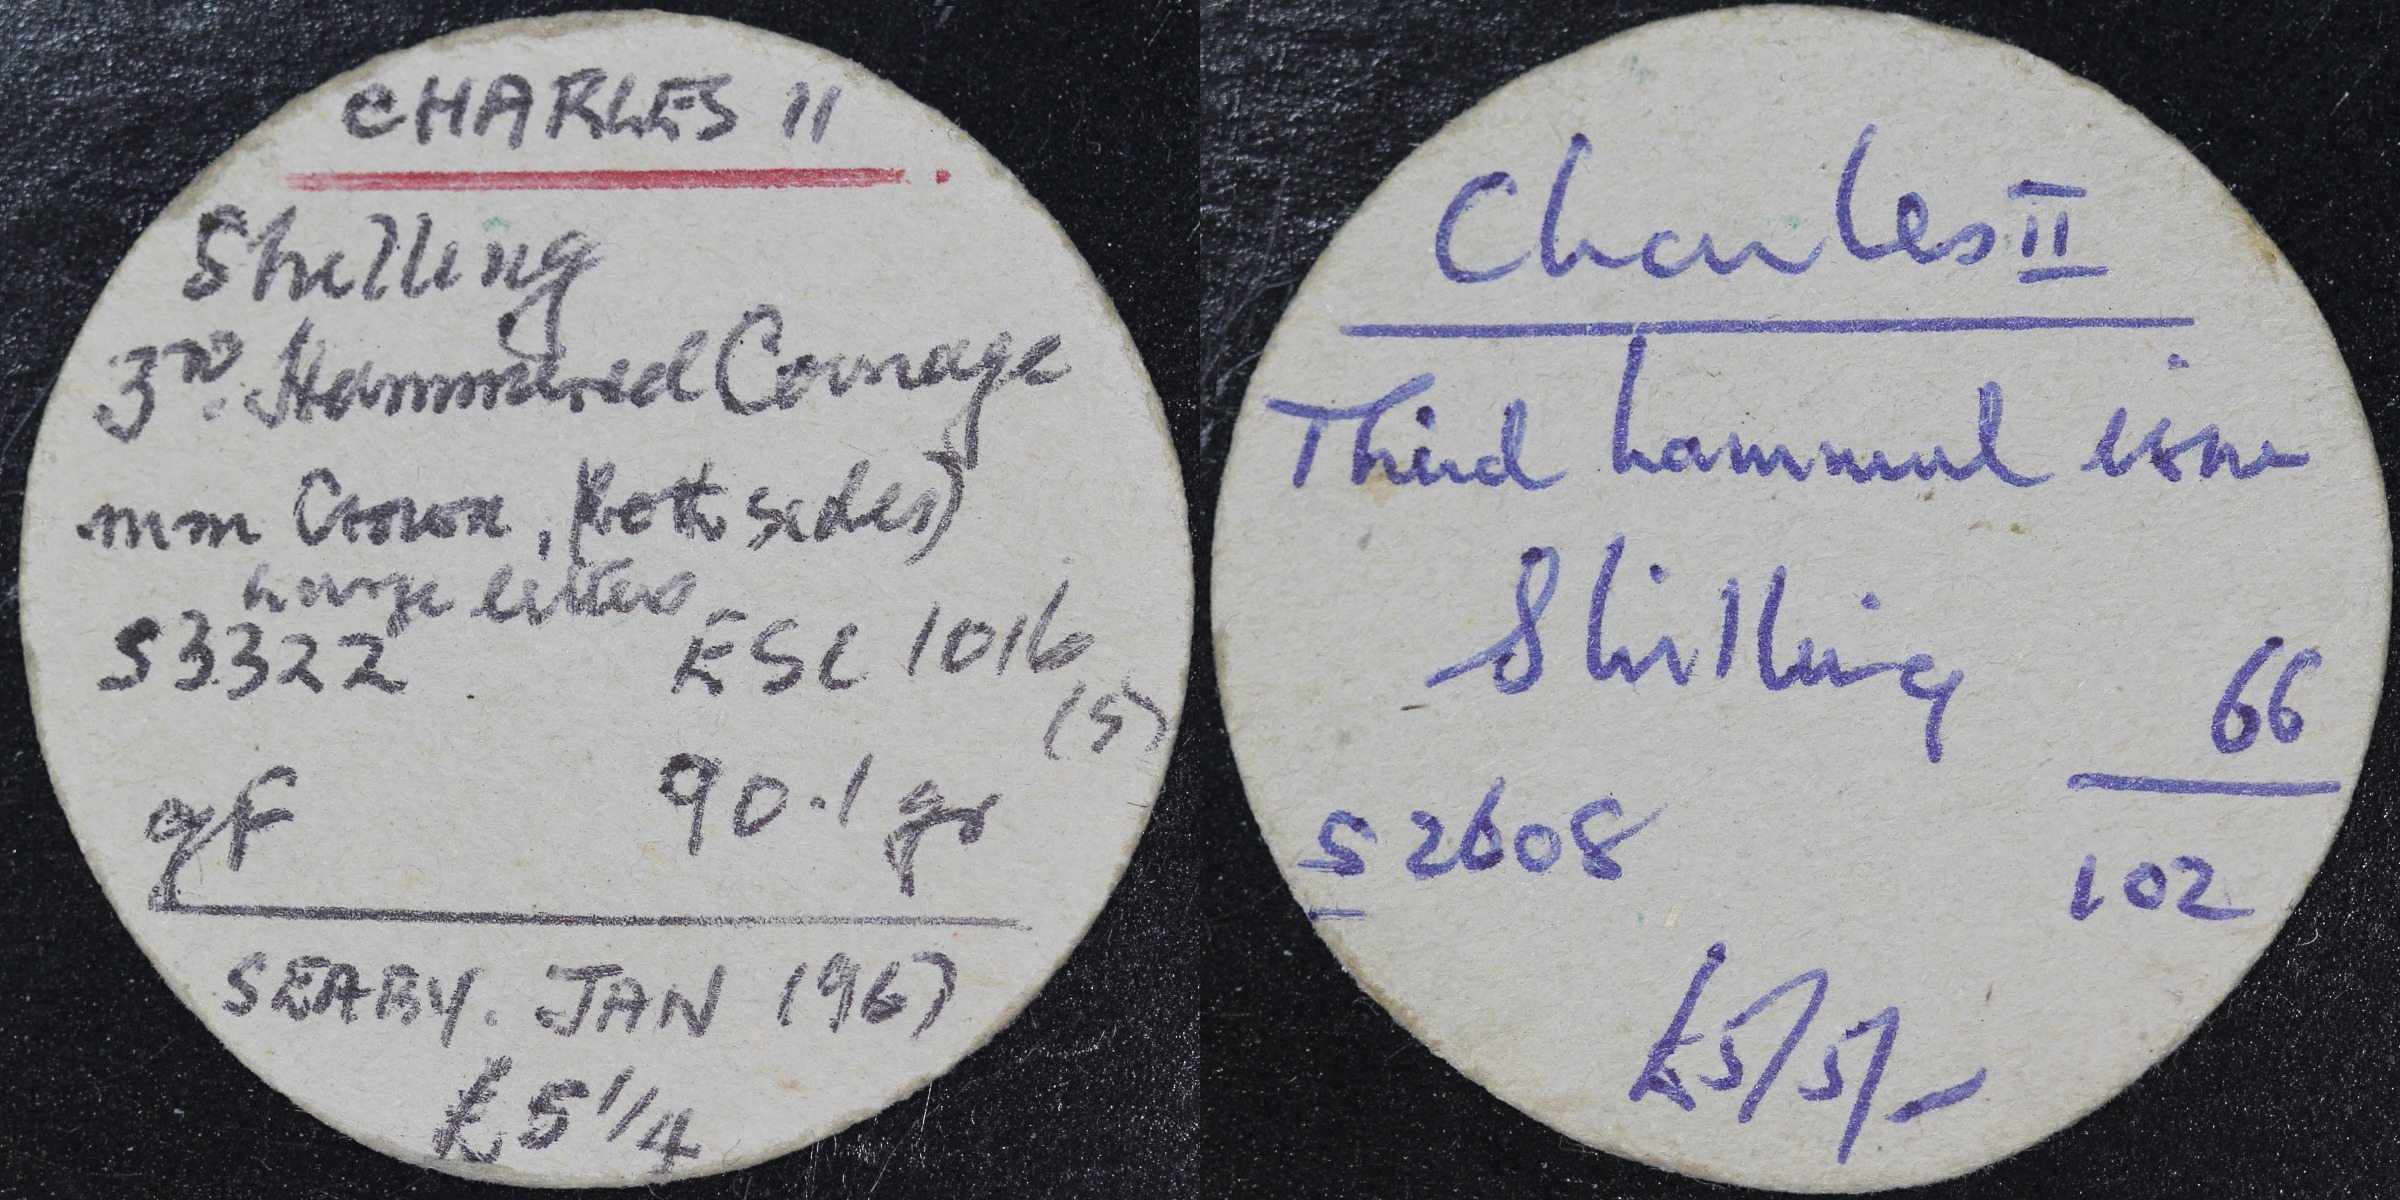 CHARLES II
Shilling
3RD. Hammered Coinage
mm Crown, (both sides)
Large letters
S3322 ESC 1016
(S)
gF 90.1 gr
SEABY. JAN 1967
£5 1/4
Charles II
Third hammered issue
Shilling
66
S2608 102
£5/5/-